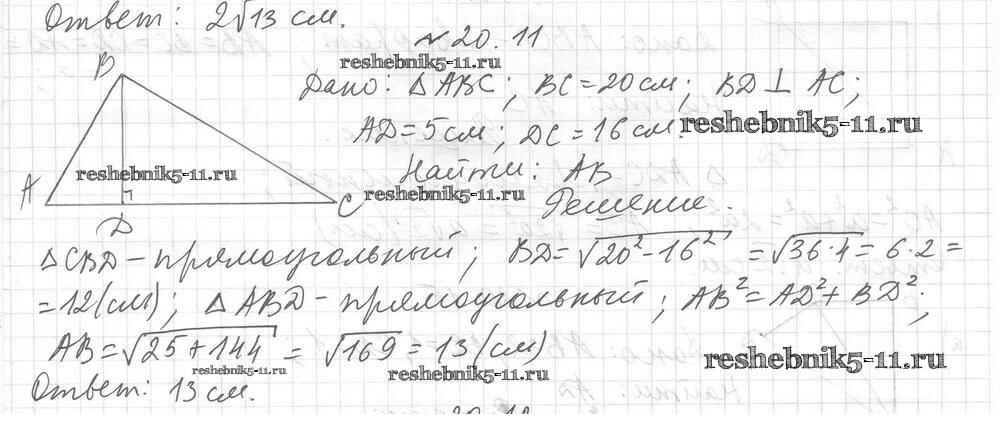 Ответ: 2√13 см.
№ 20.11
reshebnik5-11.ru
Дано: △ABC; BC=20см; BD⊥AC;
AD=5см; DC=16см.
reshebnik5-11.ru
Найти: AB
reshebnik5-11.ru
Решение.
B
reshebnik5-11.ru
A
C
D
△CBD-прямоугольный; BD=√20²-16² =√36·4=6·2=
=12(см); △ABD-прямоугольный; AB²=AD²+BD²;
AB=√25+144 = √169=13(см)
reshebnik5-11.ru
reshebnik5-11.ru
reshebnik5-11.ru
Ответ: 13см.